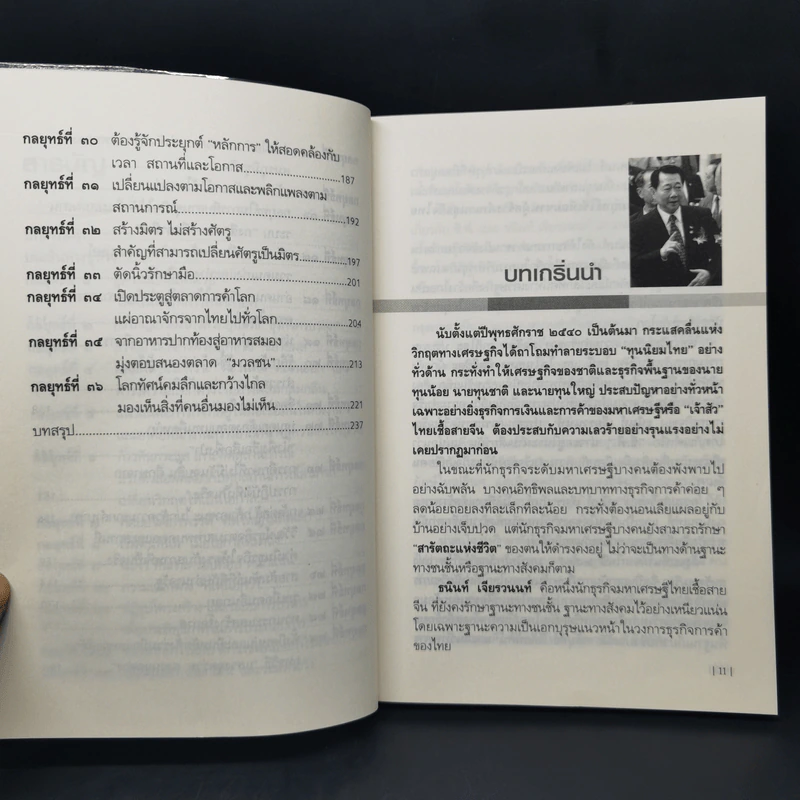 กลยุทธ์ที่ ๓๐ ต้องรู้จักประยุกต์ "หลักการ" ให้สอดคล้องกับ
เวลา สถานที่และโอกาส............187
กลยุทธ์ที่ ๓๑ เปลี่ยนแปลงตามโอกาสและพลิกแพลงตาม
สถานการณ์............192
กลยุทธ์ที่ ๓๒ สร้างมิตร ไม่สร้างศัตรู
สำคัญที่สามารถเปลี่ยนศัตรูเป็นมิตร............197
กลยุทธ์ที่ ๓๓ ตัดนิ้วรักษามือ............201
กลยุทธ์ที่ ๓๔ เปิดประตูสู่ตลาดการค้าโลก
แผ่อาณาจักรจากไทยไปทั่วโลก............204
กลยุทธ์ที่ ๓๕ จากอาหารปากท้องสู่อาหารสมอง
มุ่งตอบสนองตลาด "มวลชน"............213
กลยุทธ์ที่ ๓๖ โลกทัศน์คมลึกและกว้างไกล
มองเห็นสิ่งที่คนอื่นมองไม่เห็น............221
บทสรุป............237
บทเกริ่นนำ
นับตั้งแต่ปีพุทธศักราช ๒๕๔๐ เป็นต้นมา กระแสคลื่นแห่ง
วิกฤตทางเศรษฐกิจได้ถาโถมทำลายระบอบ "ทุนนิยมไทย" อย่าง
ทั่วด้าน กระทั่งทำให้เศรษฐกิจของชาติและธุรกิจพื้นฐานของนาย
ทุนน้อย นายทุนชาติ และนายทุนใหญ่ ประสบปัญหาอย่างทั่วหน้า
เฉพาะอย่างยิ่งธุรกิจการเงินและการค้าของมหาเศรษฐีหรือ "เจ้าสัว"
ไทยเชื้อสายจีน ต้องประสบกับความเลวร้ายอย่างรุนแรงอย่างไม่
เคยปรากฏมาก่อน
ในขณะที่นักธุรกิจระดับมหาเศรษฐีบางคนต้องพังพาบไป
อย่างฉับพลัน บางคนอิทธิพลและบทบาททางธุรกิจการค้าค่อย ๆ
ลดน้อยถอยลงทีละเล็กทีละน้อย กระทั่งต้องนอนเลียแผลอยู่กับ
บ้านอย่างเจ็บปวด แต่นักธุรกิจมหาเศรษฐีบางคนยังสามารถรักษา
"สารัตถะแห่งชีวิต" ของตนให้ดำรงคงอยู่ ไม่ว่าจะเป็นทางด้านฐานะ
ทางชนชั้นหรือฐานะทางสังคมก็ตาม
ธนินท์ เจียรวนนท์ คือหนึ่งนักธุรกิจมหาเศรษฐีไทยเชื้อสาย
จีน ที่ยังคงรักษาฐานะทางชนชั้น ฐานะทางสังคมไว้อย่างเหนียวแน่น
โดยเฉพาะฐานะความเป็นเอกบุรุษแนวหน้าในวงการธุรกิจการค้า
ของไทย
| 11 |